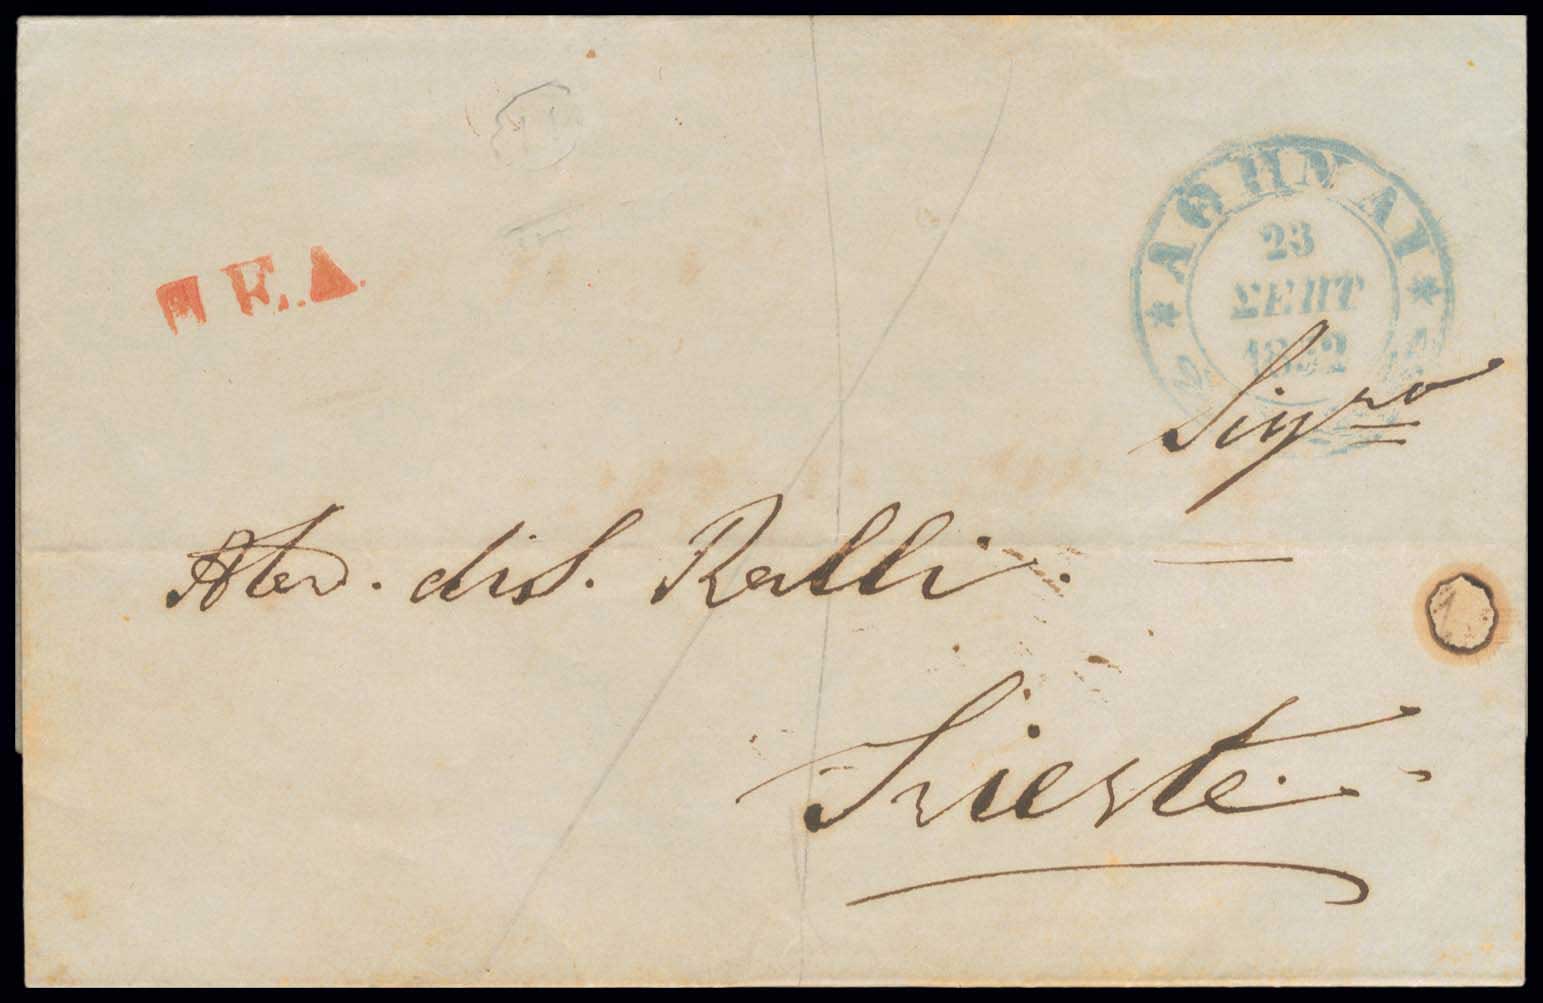 Π Ε. Δ.
ΑΘΗΝΑΙ
23
ΣΕΠΤ
1852
Sigro
Aless. di S. Ralli.
Trieste.